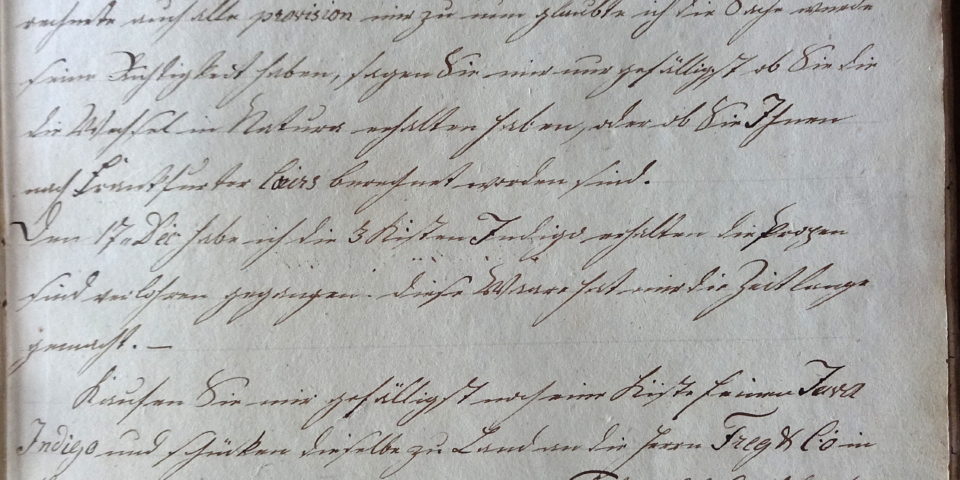 rechnete auch alle provision mir zu nun glaubte ich die Sache werde
seine Richtigkeit haben, sagen Sie mir nur gefälligst ob Sie die
die Wechsel in Natura erhalten haben, oder ob Sie Ihnen
nach Frankfurter Cours berechnet worden sind.
Den 17 Dec habe ich die 3 Kisten Indigo erhalten die
sind verlohren gegangen. diese Waare hat mir die Zeit lange
gemacht. —
Kaufen Sie mir gefälligst noch eine Kiste feinen Java
Indigo und schicken dieselbe zu Land an die Herrn Frege & Co in